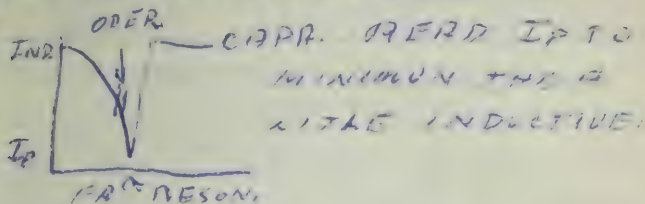 OPER.
IND. CAPA. READ IP TO
MINIMUM THE A
LITLE INDUCTIVE.
IP
RESON.